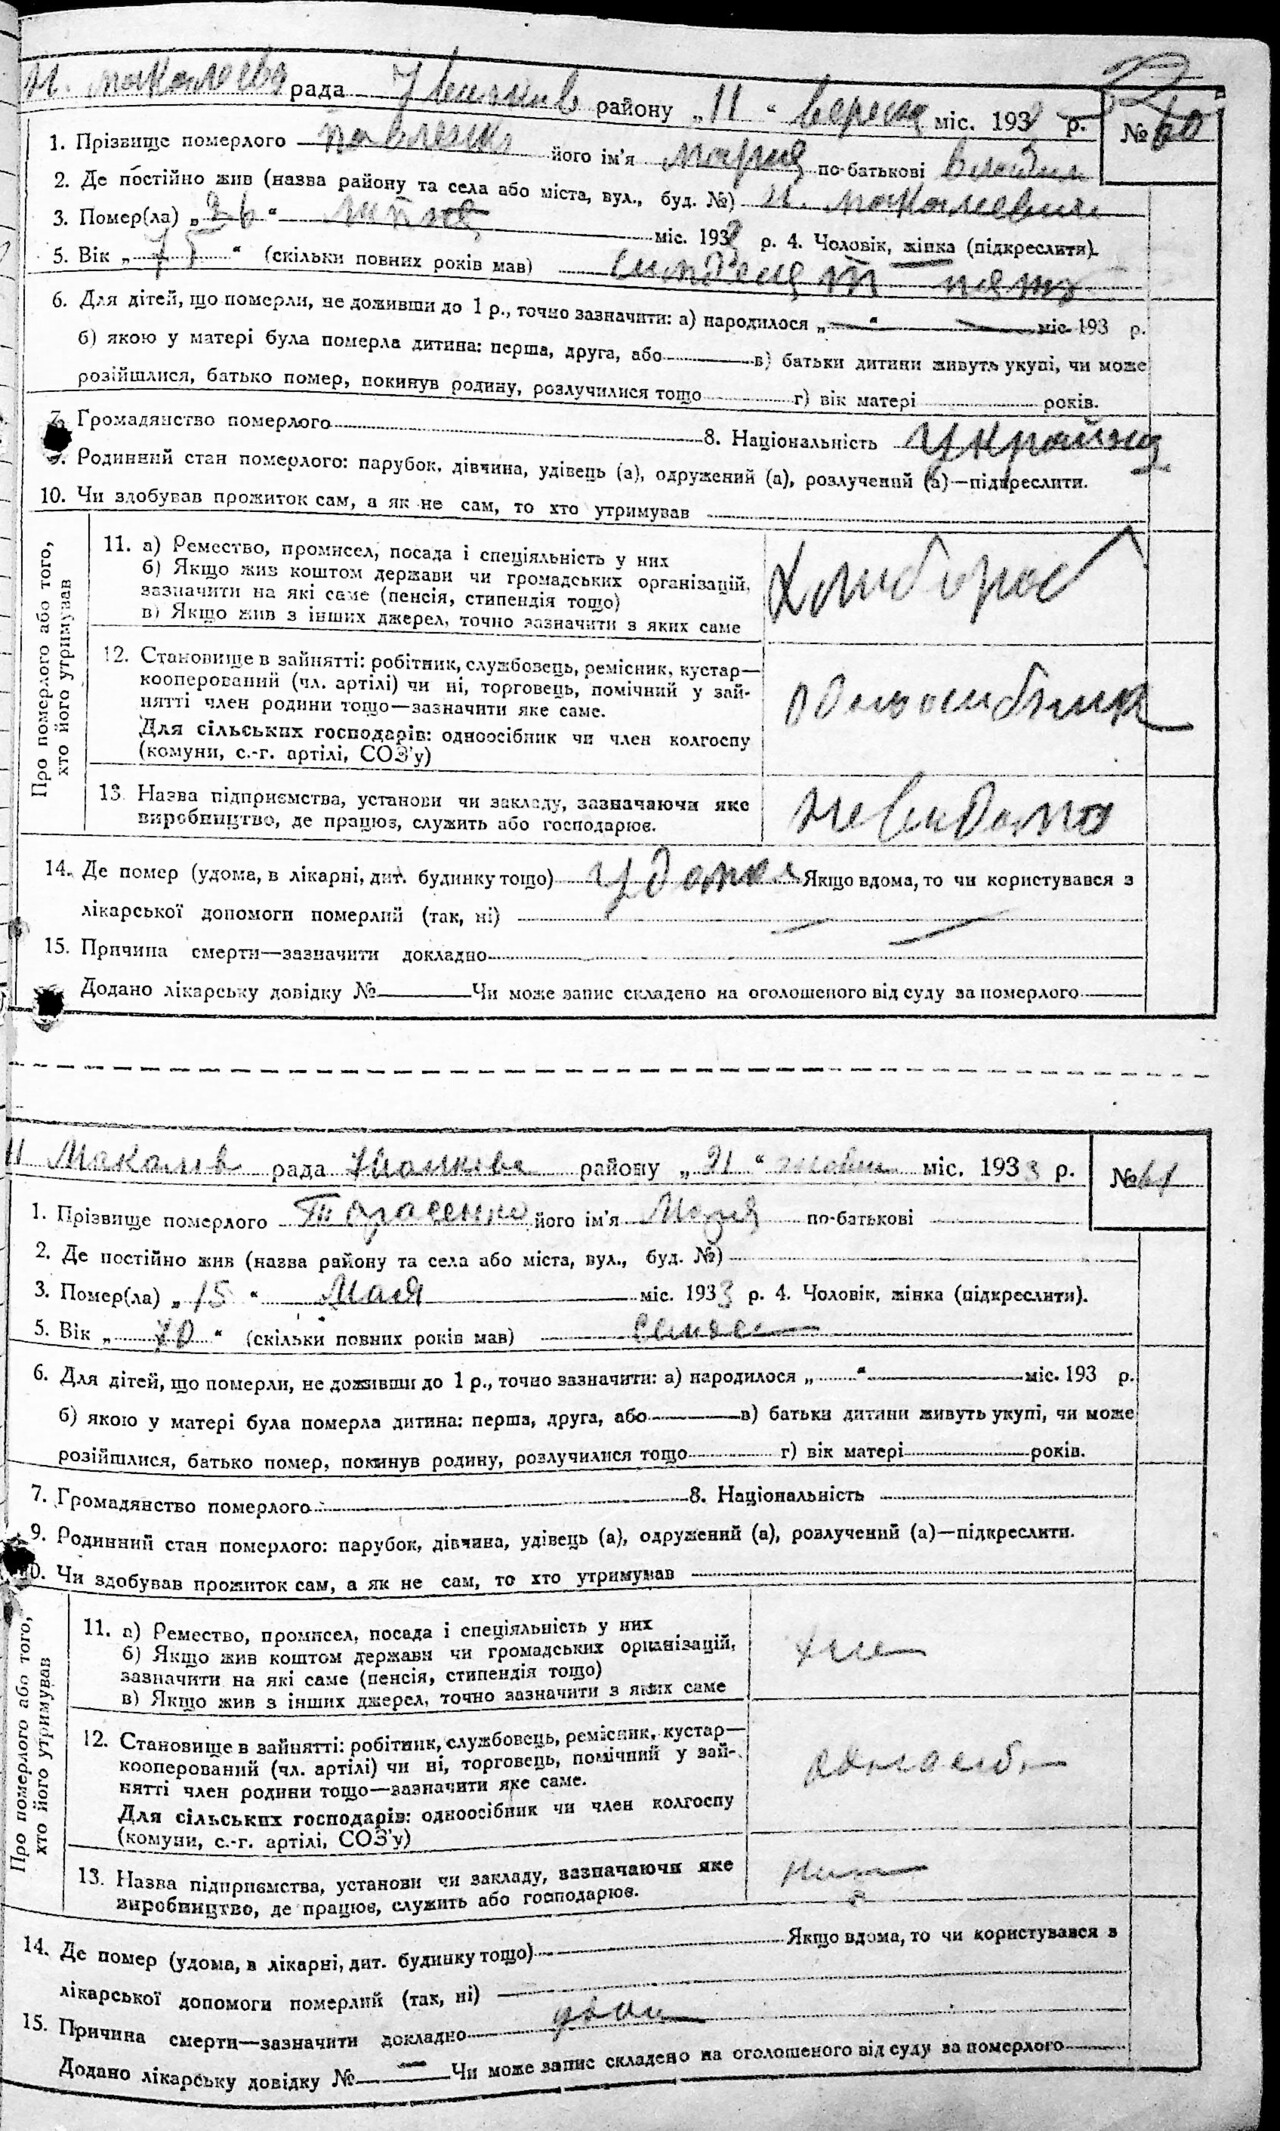 рада району „11“ міс. 193 р. № 60
1. Прізвище померлого його ім'я Мария по-батькові
2. Де постійно жив (назва району та села або міста, вул., буд. №)
3. Помер(ла) „26“ міс. 193 р. 4. Чоловік, жінка (підкреслити).
5. Вік „75“ (скільки повних років мав)
6. Для дітей, що померли, не доживши до 1 р., точно зазначити: а) народилося „ “ міс. 193 р.
б) якою у матері була померла дитина: перша, друга, або в) батьки дитини живуть укупі, чи може
розійшлися, батько помер, покинув родину, розлучилися тощо г) вік матері років.
7. Громадянство померлого 8. Національність
9. Родинний стан померлого: парубок, дівчина, удівець (а), одружений (а), розлучений (а)—підкреслити.
10. Чи здобував прожиток сам, а як не сам, то хто утримував
Про померлого або того,
хто його утримував
11. а) Ремество, промисел, посада і спеціяльність у них
б) Якщо жив коштом держави чи громадських організацій,
зазначити на які саме (пенсія, стипендія тощо)
в) Якщо жив з інших джерел, точно зазначити з яких саме
Хлибороб
12. Становище в зайнятті: робітник, службовець, ремісник, кустар—
кооперований (чл. артілі) чи ні, торговець, помічний у зай-
нятті член родини тощо—зазначити яке саме.
Для сільських господарів: одноосібник чи член колгоспу
(комуни, с.-г. артілі, СОЗ'у)
13. Назва підприємства, установи чи закладу, зазначаючи яке
виробництво, де працює, служить або господарює.
невидомо
14. Де помер (удома, в лікарні, дит. будинку тощо) удома Якщо вдома, то чи користувався з
лікарської допомоги померлий (так, ні)
15. Причина смерти—зазначити докладно
Додано лікарську довідку № Чи може запис складено на оголошеного від суду за померлого
рада району „21“ міс. 1933 р. № 61
1. Прізвище померлого Тарасенко його ім'я Мария по-батькові
2. Де постійно жив (назва району та села або міста, вул., буд. №)
3. Помер(ла) „15“ Мая міс. 1933 р. 4. Чоловік, жінка (підкреслити).
5. Вік „70“ (скільки повних років мав)
6. Для дітей, що померли, не доживши до 1 р., точно зазначити: а) народилося „ “ міс. 193 р.
б) якою у матері була померла дитина: перша, друга, або в) батьки дитини живуть укупі, чи може
розійшлися, батько помер, покинув родину, розлучилися тощо г) вік матері років.
7. Громадянство померлого 8. Національність
9. Родинний стан померлого: парубок, дівчина, удівець (а), одружений (а), розлучений (а)—підкреслити.
10. Чи здобував прожиток сам, а як не сам, то хто утримував
Про померлого або того,
хто його утримував
11. а) Ремество, промисел, посада і спеціяльність у них
б) Якщо жив коштом держави чи громадських організацій,
зазначити на які саме (пенсія, стипендія тощо)
в) Якщо жив з інших джерел, точно зазначити з яких саме
12. Становище в зайнятті: робітник, службовець, ремісник, кустар—
кооперований (чл. артілі) чи ні, торговець, помічний у зай-
нятті член родини тощо—зазначити яке саме.
Для сільських господарів: одноосібник чи член колгоспу
(комуни, с.-г. артілі, СОЗ'у)
13. Назва підприємства, установи чи закладу, зазначаючи яке
виробництво, де працює, служить або господарює.
14. Де помер (удома, в лікарні, дит. будинку тощо) Якщо вдома, то чи користувався з
лікарської допомоги померлий (так, ні)
15. Причина смерти—зазначити докладно
Додано лікарську довідку № — Чи може запис складено на оголошеного від суду за померлого